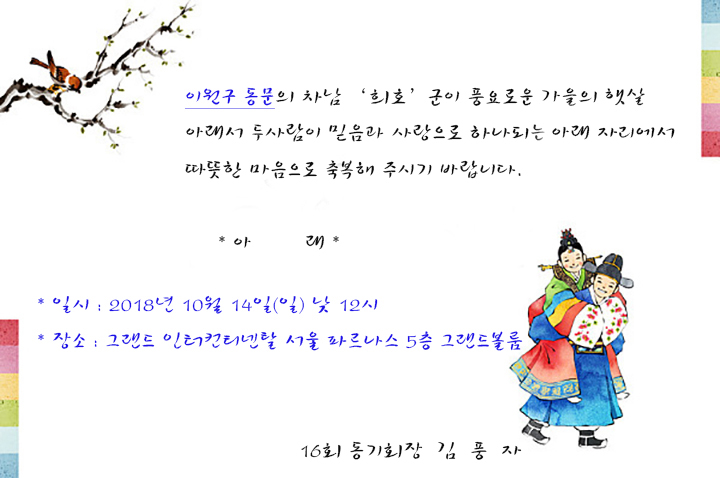 이원구 동문의 차남 ‘희호’ 군이 풍요로운 가을의 햇살
아래서 두사람이 믿음과 사랑으로 하나되는 아래 자리에서
따뜻한 마음으로 축복해 주시기 바랍니다.
* 아 래 *
* 일시 : 2018년 10월 14일(일) 낮 12시
* 장소 : 그랜드 인터컨티넨탈 서울 파르나스 5층 그랜드볼룸
16회 동기회장 김 풍 자